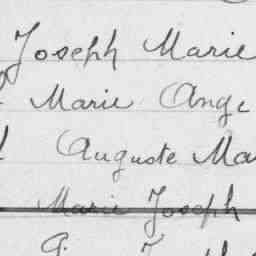 Joseph Marie
Marie Ange
Auguste Ma
Marie Joseph